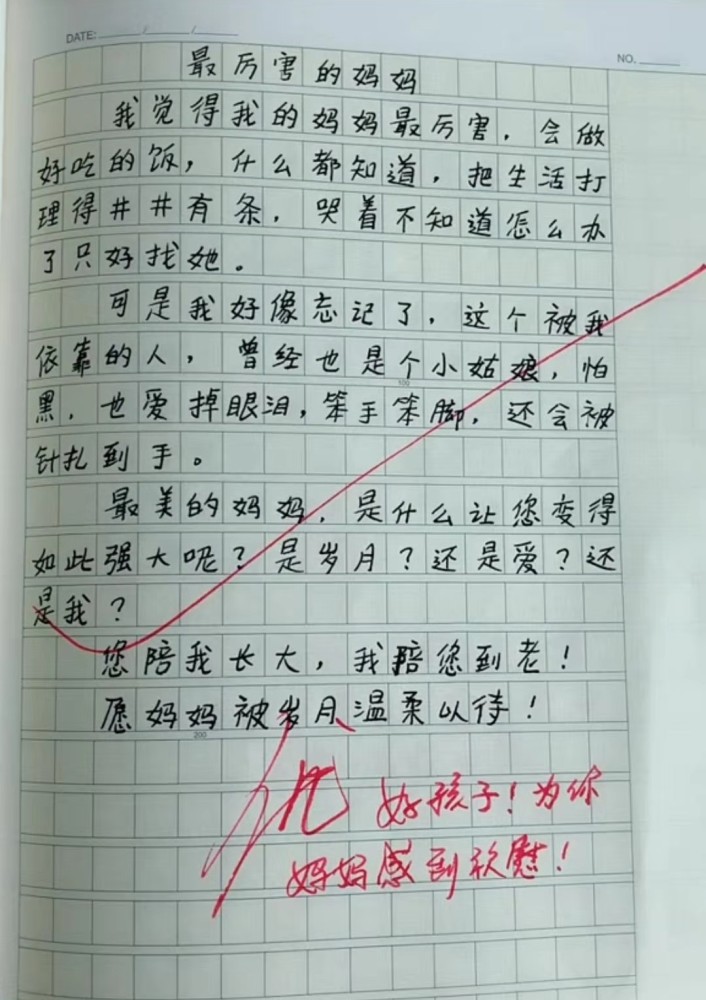 DATE: / /
NO.
最厉害的妈妈
我觉得我的妈妈最厉害，会做
好吃的饭，什么都知道，把生活打
理得井井有条，哭着不知道怎么办
了只好找她。
可是我好像忘记了，这个被我
依靠的人，曾经也是个小姑娘，怕
100
黑，也爱掉眼泪，笨手笨脚，还会被
针扎到手。
最美的妈妈，是什么让您变得
如此强大呢？是岁月？还是爱？还
是我？
您陪我长大，我陪您到老！
愿妈妈被岁月温柔以待！
200
优
好孩子！为你
妈妈感到欣慰！